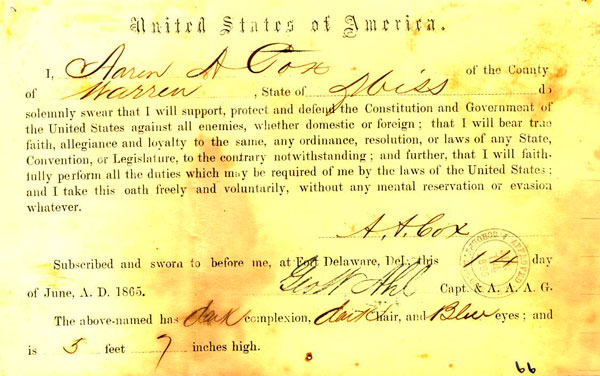 United States of America.
I, Aaron A Cox of the County
of Warren, State of Miss do
solemnly swear that I will support, protect and defend the Constitution and Government of
the United States against all enemies, whether domestic or foreign; that I will bear true
faith, allegiance and loyalty to the same, any ordinance, resolution, or laws of any State,
Convention, or Legislature, to the contrary notwithstanding; and further, that I will faith-
fully perform all the duties which may be required of me by the laws of the United States;
and I take this oath freely and voluntarily, without any mental reservation or evasion
whatever.
A. A. Cox
Subscribed and sworn to before me, at Fort Delaware, Del., this 14 day
of June, A. D. 1865. Geo W Ahl Capt. & A. A. A. G.
The above-named has dark complexion, dark hair, and Blue eyes; and
is 5 feet 7 inches high.
66